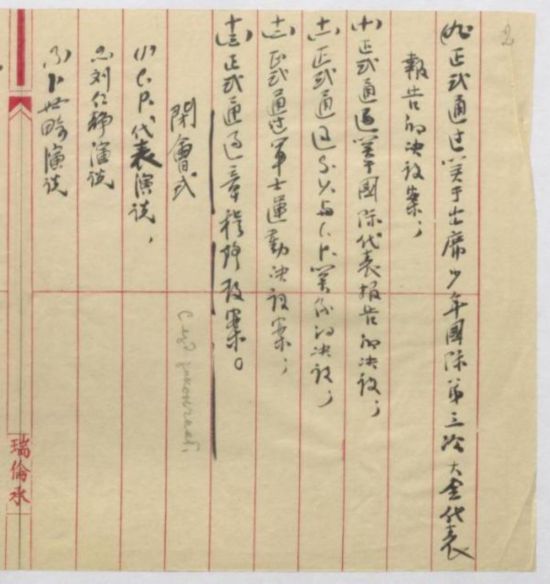 2
(九)正式通过关于出席少年国际第三次大会代表
報告的决议案;
(十)正式通過关于國际代表报告的决议;
(十一)正式通過S.Y.与C.P.关係的决议;
(十二)正式通过軍士運動决议案;
(十三)正式通過章程修改案。
閉會式
(1)C.P.代表演说,
(2)刘仁静演说
(3)卜世畸演说
瑞倫承